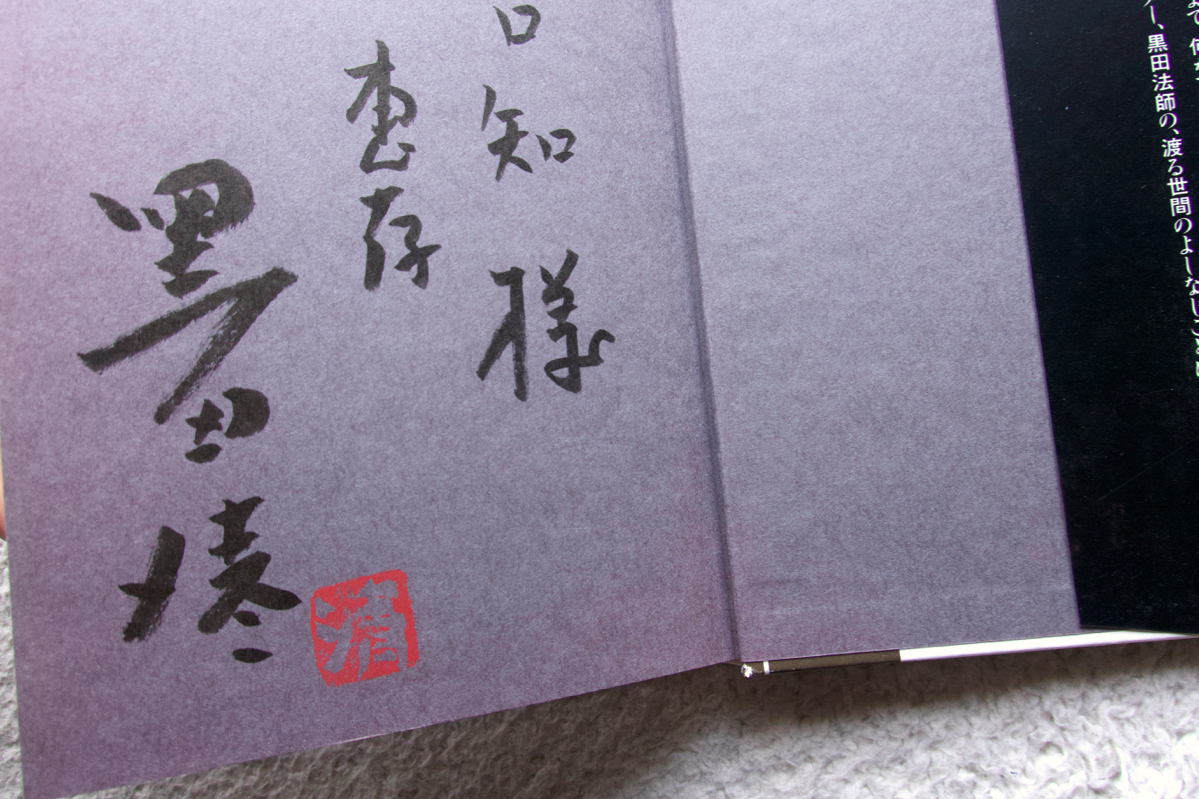 ー、黒田法師の、渡る世間のよしなしごと
口知 様
恵存
黒田 清
清